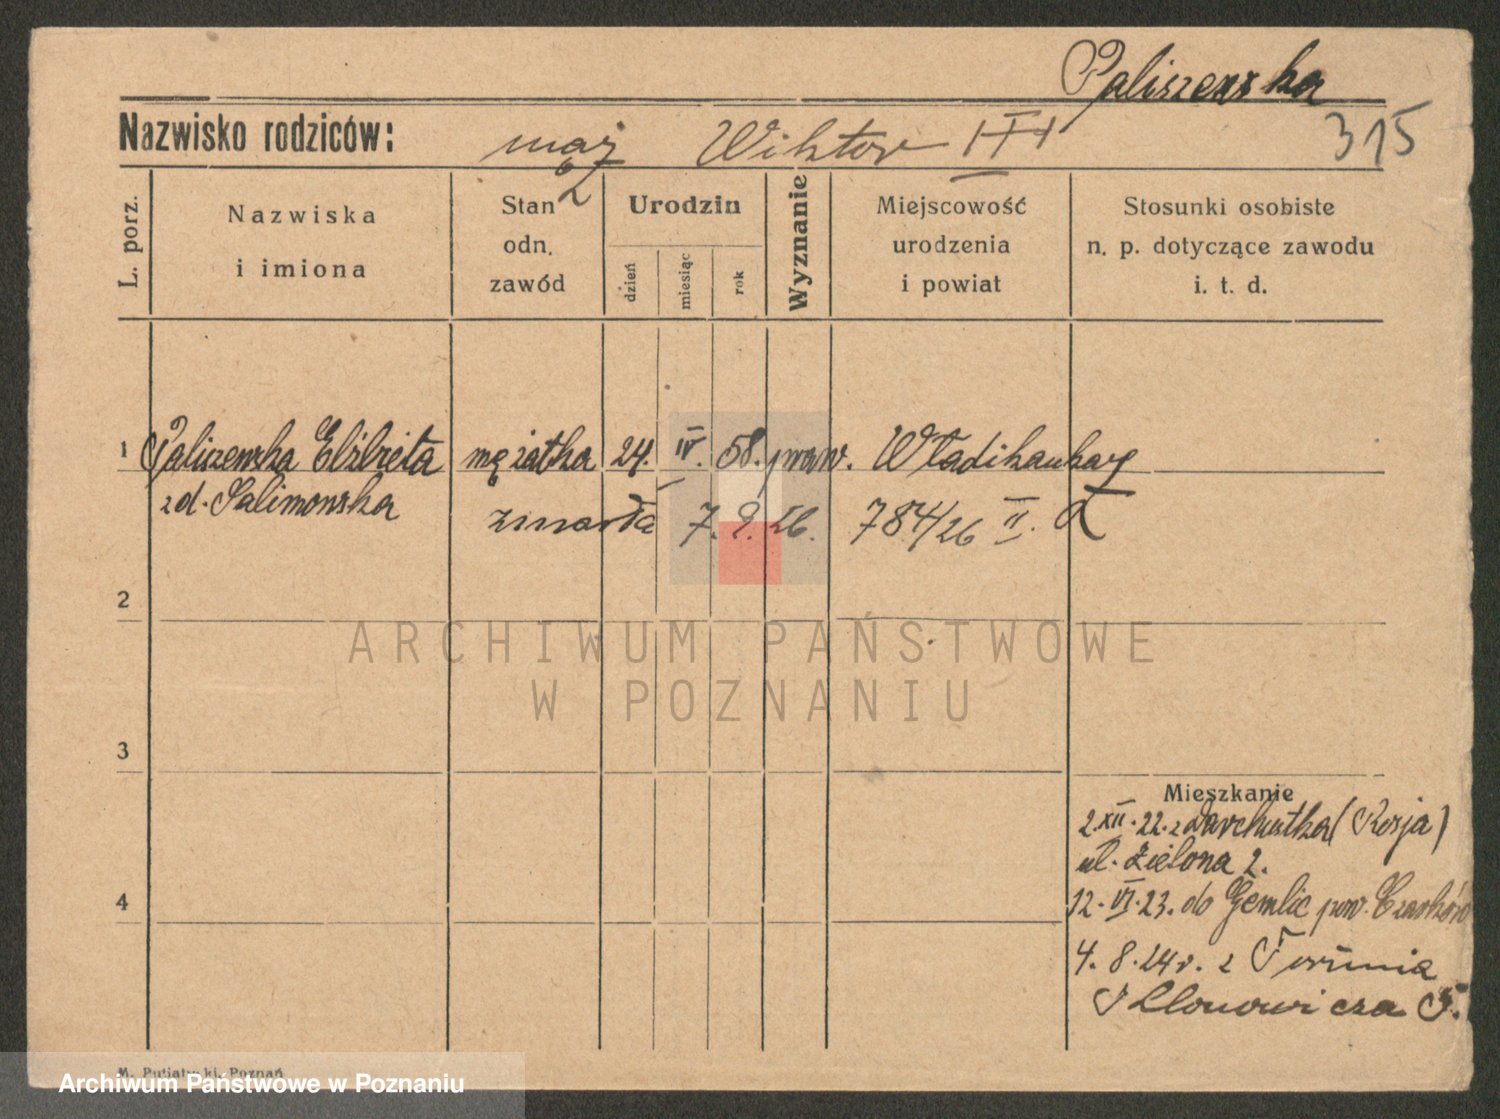 Paliszewska
Nazwisko rodziców: mąż Wiktor III 315
L. porz.
Nazwiska
i imiona
Stan
odn.
zawód
Urodzin
dzień
miesiąc
rok
Wyznanie
Miejscowość
urodzenia
i powiat
Stosunki osobiste
n. p. dotyczące zawodu
i. t. d.
1 Paliszewska Elżbieta mężatka 24. IV. 58. praw. Władikaukaz
z d. Salimowska zmarła 7. 9. 26. 784/26 II.
2
ARCHIWUM PAŃSTWOWE
W POZNANIU
3
Mieszkanie
2. XII. 22. z (Rosja)
ul. Zielona 2.
4
12. VI. 23. do Gemlic pow.
4. 8. 24 r. z Torunia
M. Putiatycki, Poznań
Archiwum Państwowe w Poznaniu